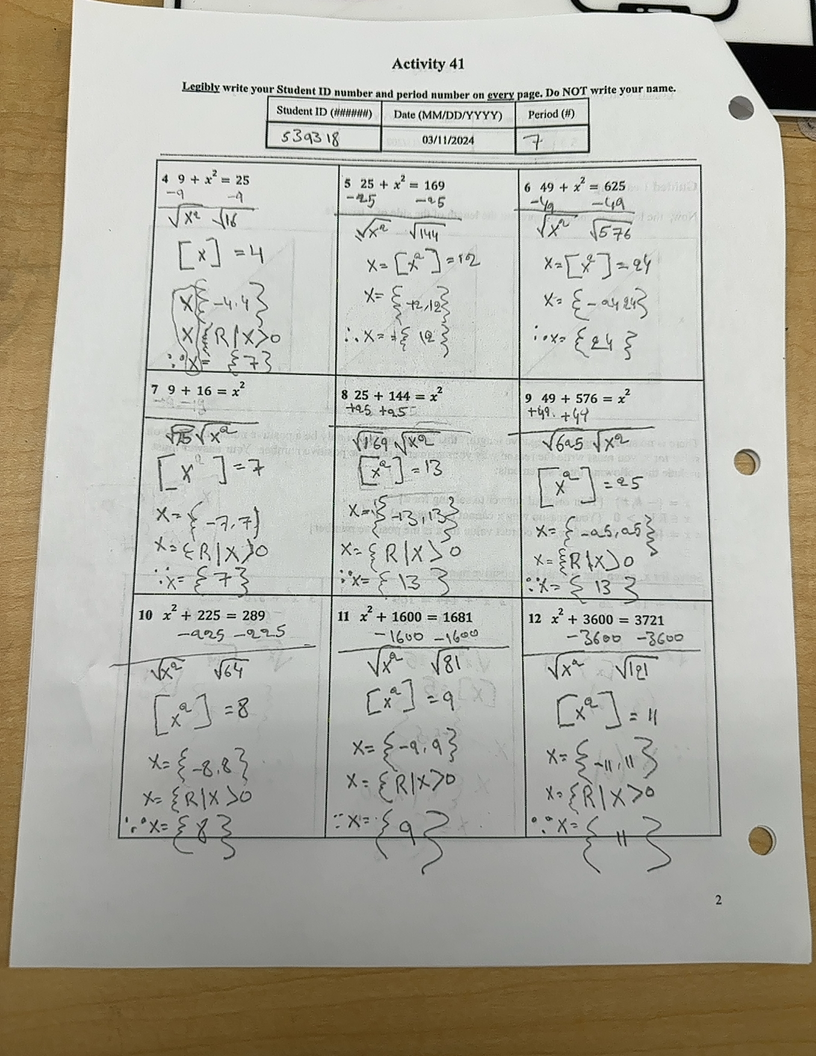 Activity 41
Legibly write your Student ID number and period number on every page. Do NOT write your name.
Student ID (######) Date (MM/DD/YYYY) Period (#)
539318 03/11/2024 7
4 9 + x² = 25
-9 -9
√x² √16
[x] = 4
x{-4,4}
x{R|X>0
∴x= {7}
5 25 + x² = 169
-25 -25
√x² √144
x=[x²]=12
x={-12,12}
∴x={12}
6 49 + x² = 625
-49 -49
√x² √576
x=[x²]=24
x={-24 24}
∴x={24}
7 9 + 16 = x²
√x²
[x²]=7
x={-7,7}
x={R|X>0
∴x={7}
8 25 + 144 = x²
+25 +25
√169 √x²
[x²]=13
x={-13,13}
x={R|X>0
∴x={13}
9 49 + 576 = x²
+49 +49
√625 √x²
[x²]=25
x={-25,25}
x={R|X>0
∴x={13}
10 x² + 225 = 289
-225 -225
√x² √64
[x²]=8
x={-8,8}
x={R|X>0
∴x={8}
11 x² + 1600 = 1681
-1600 -1600
√x² √81
[x²]=9
x={-9,9}
x={R|X>0
∴x={9}
12 x² + 3600 = 3721
-3600 -3600
√x² √121
[x²]=11
x={-11,11}
x={R|X>0
∴x={11}
2